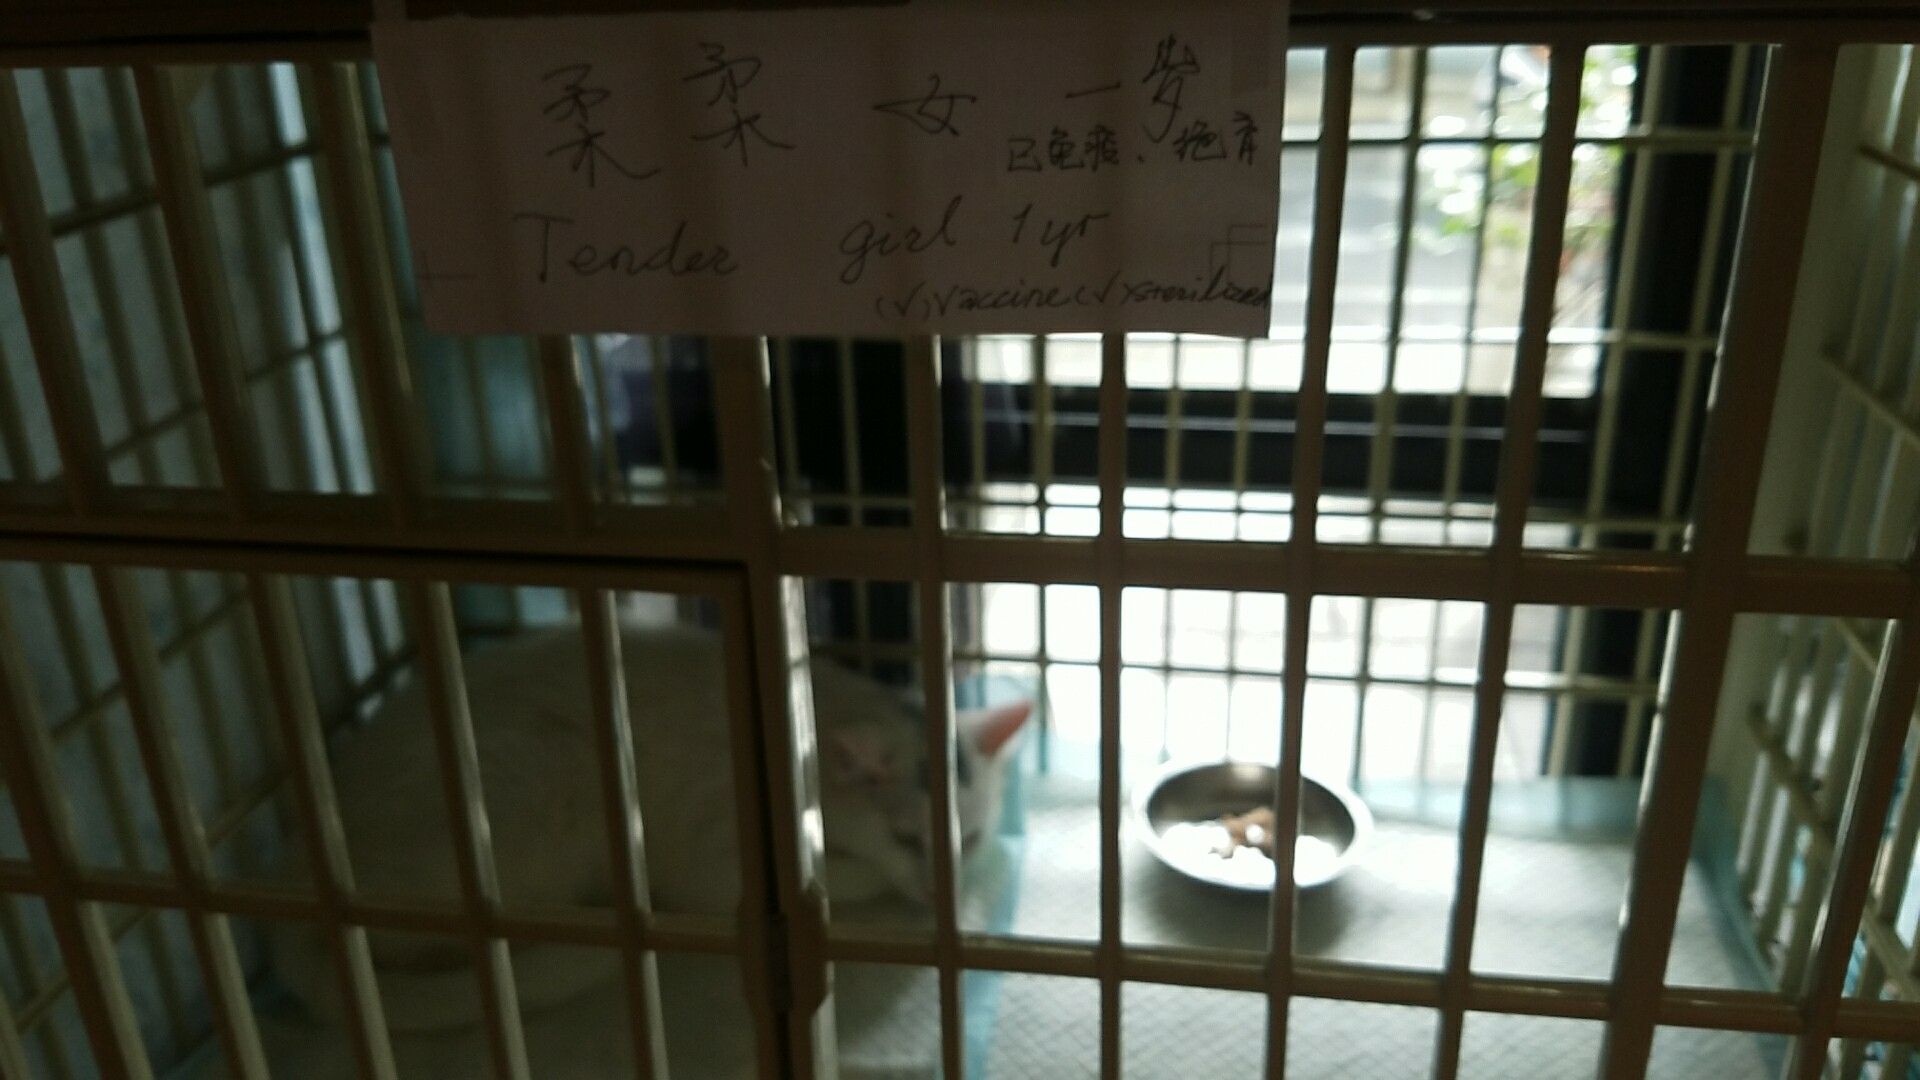 柔柔 女 一岁
已免疫、绝育
Tender girl 1 yr
(√) Vaccine (√) sterilized